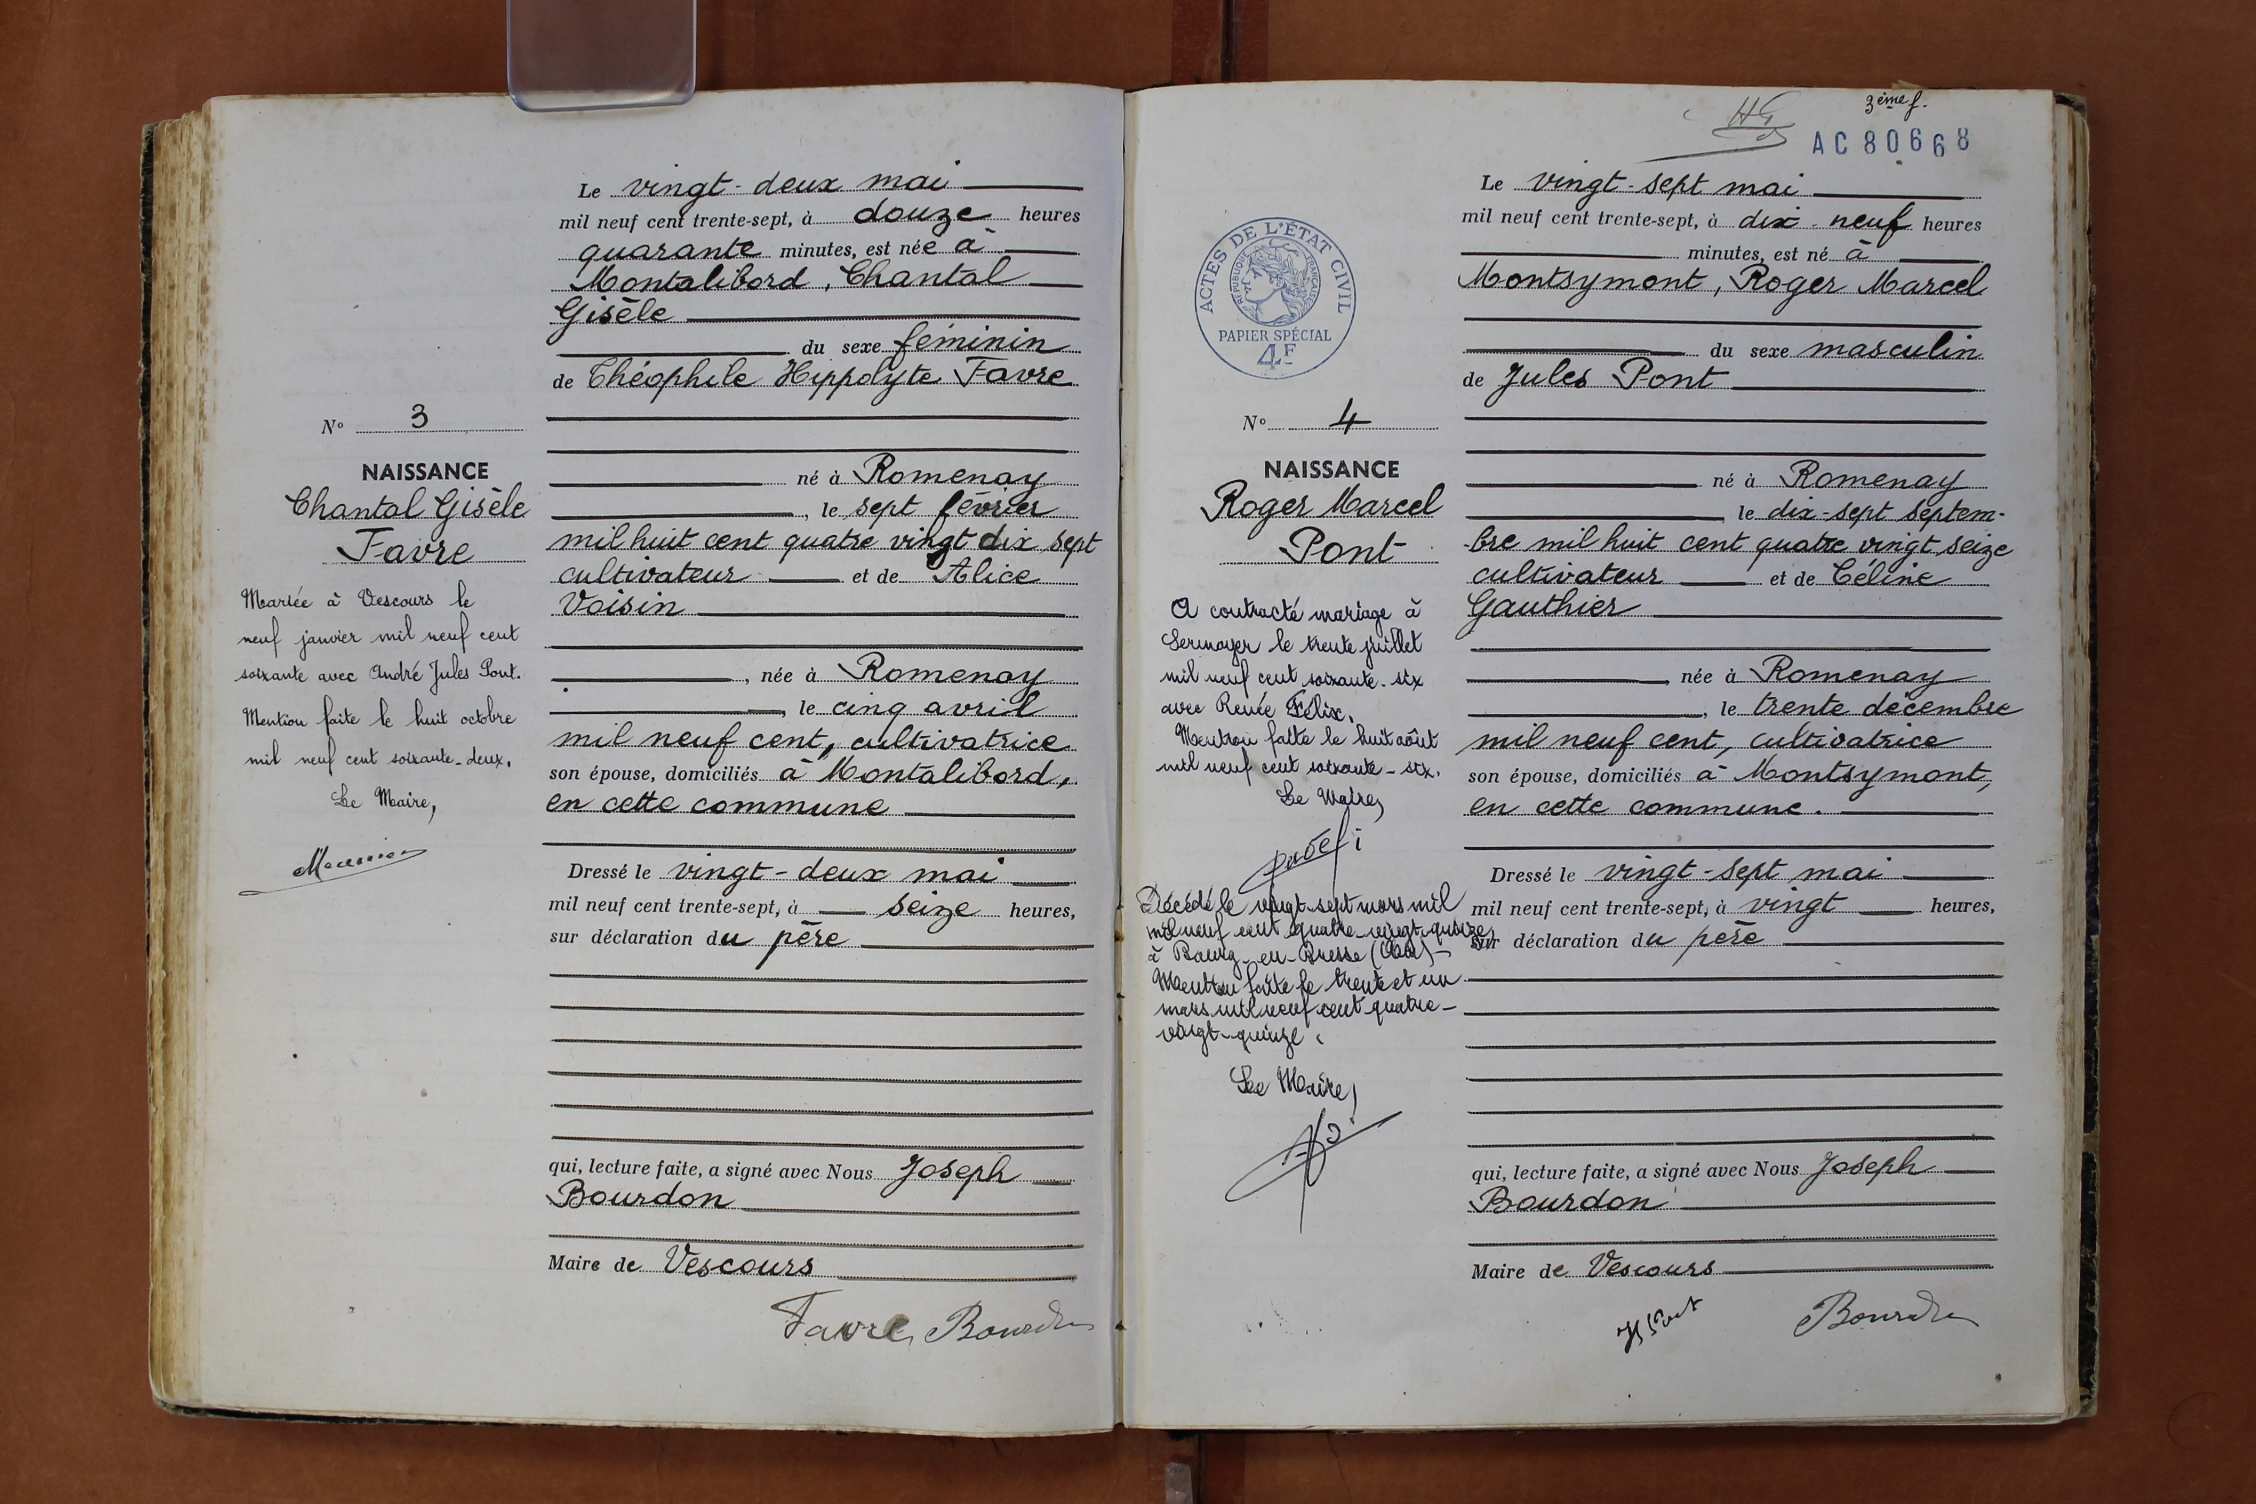 Le vingt-deux mai
mil neuf cent trente-sept, à douze heures
quarante minutes, est née à
Montalibord, Chantal
Gisèle
du sexe féminin
de Théophile Hippolyte Favre
né à Romenay
, le sept février
mil huit cent quatre vingt dix sept
cultivateur et de Alice
Voisin
, née à Romenay
, le cinq avril
mil neuf cent, cultivatrice
son épouse, domiciliés à Montalibord,
en cette commune
Dressé le vingt-deux mai
mil neuf cent trente-sept, à seize heures,
sur déclaration du père
qui, lecture faite, a signé avec Nous Joseph
Bourdon
Maire de Vescours
Favre Bourdon
N° 3
NAISSANCE
Chantal Gisèle
Favre
Mariée à Vescours le
neuf janvier mil neuf cent
soixante avec André Jules Pont.
Mention faite le huit octobre
mil neuf cent soixante-deux.
Le Maire,
3ème f.
AC80668
Le vingt-sept mai
mil neuf cent trente-sept, à dix-neuf heures
minutes, est né à
Montsymont, Roger Marcel
du sexe masculin
de Jules Pont
né à Romenay
le dix-sept septem-
bre mil huit cent quatre vingt seize
cultivateur et de Céline
Gauthier
née à Romenay
, le trente décembre
mil neuf cent, cultivatrice
son épouse, domiciliés à Montsymont,
en cette commune.
Dressé le vingt-sept mai
mil neuf cent trente-sept, à vingt heures,
sur déclaration du père
qui, lecture faite, a signé avec Nous Joseph
Bourdon
Maire de Vescours
Bourdon
ACTES DE L'ÉTAT CIVIL
RÉPUBLIQUE FRANÇAISE
PAPIER SPÉCIAL
4F
N° 4
NAISSANCE
Roger Marcel
Pont
A contracté mariage à
Sermoyer le trente juillet
mil neuf cent soixante-six
avec Renée Félix.
Mention faite le huit août
mil neuf cent soixante-six.
Le Maire,
Décédé le vingt-sept mars mil
mil neuf cent quatre-vingt-quinze
à Bourg-en-Bresse (Ain)-
Mention faite le trente et un
mars mil neuf cent quatre-
vingt-quinze.
Le Maire,